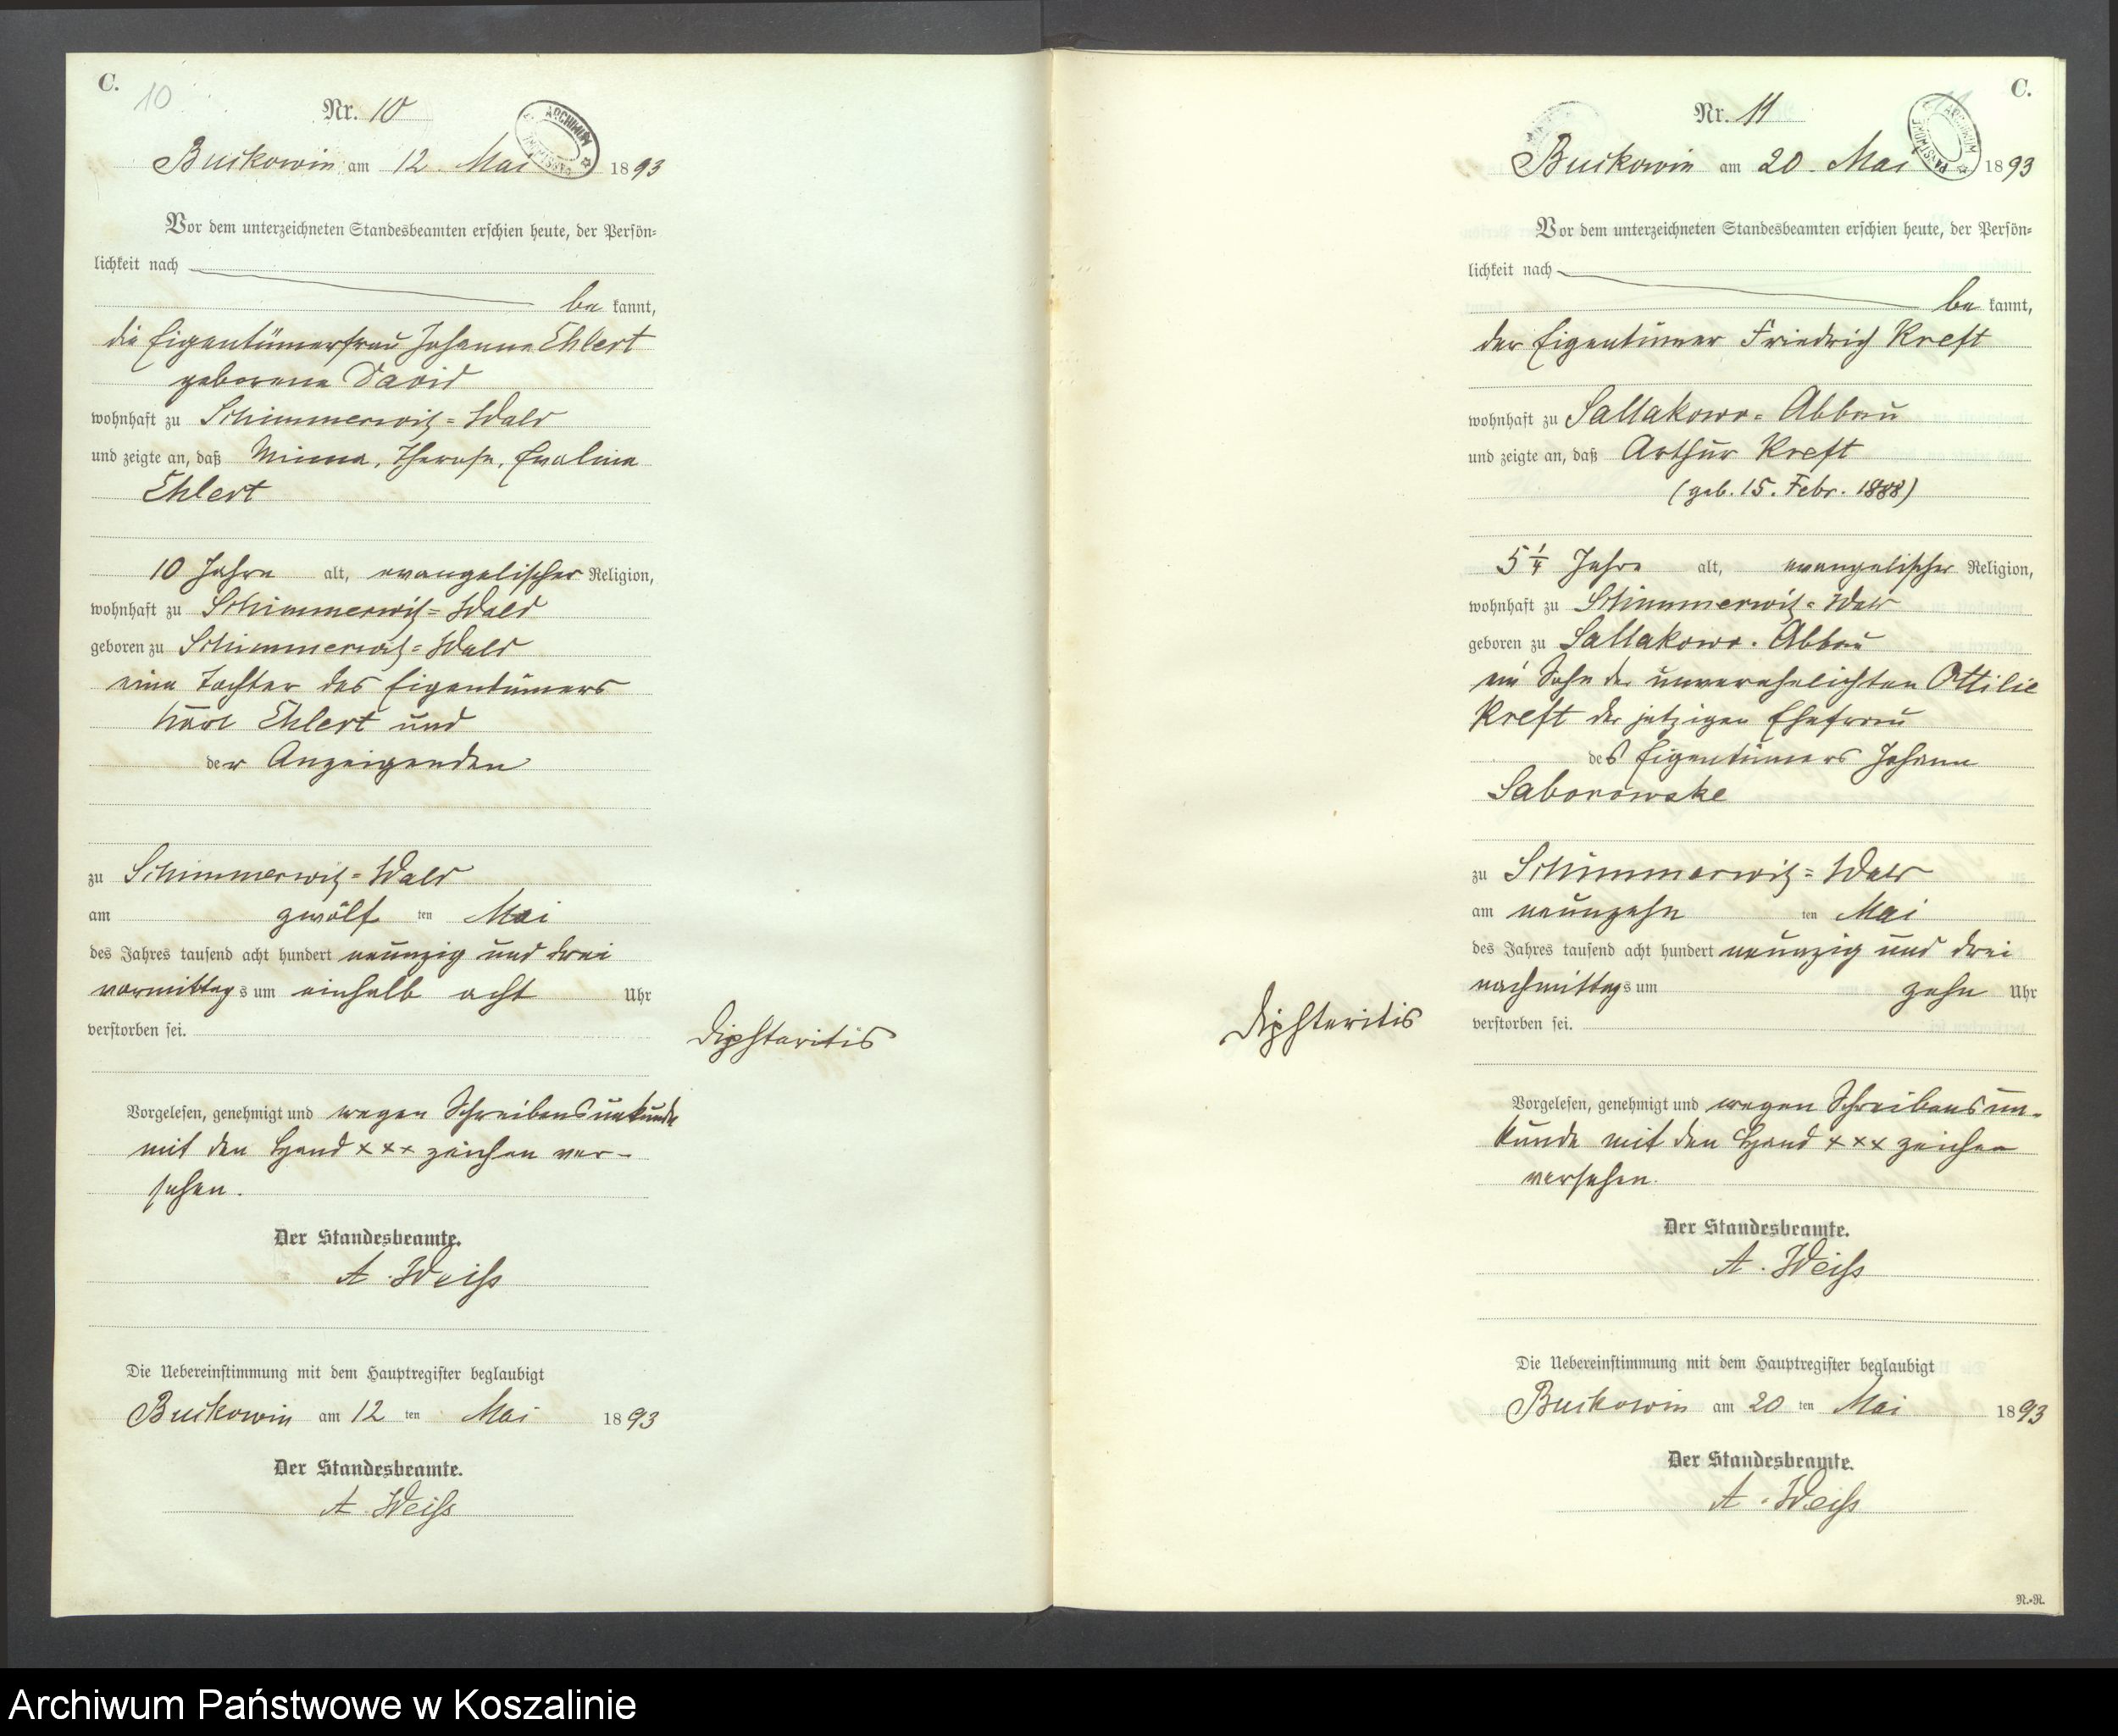 C.
10
Nr. 10
ARCHIWUM
Buckowin am 12. Mai 1893
Vor dem unterzeichneten Standesbeamten erschien heute, der Persön=
lichkeit nach
be kannt,
die Eigentümerfrau Johanna Ehlert
geborene David
wohnhaft zu Schimmerwitz=Wald
und zeigte an, daß Minna, Therese, Evaline
Ehlert
10 Jahre alt, evangelischer Religion,
wohnhaft zu Schimmerwitz=Wald
geboren zu Schimmerwitz=Wald
eine Tochter des Eigentümers
Karl Ehlert und
der Anzeigenden
zu Schimmerwitz=Wald
am zwölf ten Mai
des Jahres tausend acht hundert neunzig und drei
vormittags um einhalb acht Uhr
verstorben sei.
Diphteritis
Vorgelesen, genehmigt und wegen Schreibensunkunde
mit den Hand xxx zeichen ver-
sehen.
Der Standesbeamte.
A. Weiß
Die Uebereinstimmung mit dem Hauptregister beglaubigt
Buckowin am 12 ten Mai 1893
Der Standesbeamte.
A. Weiß
C.
Nr. 11
ARCHIWUM PAŃSTWOWE
Buckowin am 20. Mai 1893
Vor dem unterzeichneten Standesbeamten erschien heute, der Persön=
lichkeit nach
be kannt,
der Eigentümer Friedrich Kreft
wohnhaft zu Sallakowo=Abbau
und zeigte an, daß Arthur Kreft
(geb. 15. Febr. 1888)
5 1/4 Jahre alt, evangelischer Religion,
wohnhaft zu Schimmerwitz=Wald
geboren zu Sallakowo=Abbau
ein Sohn der unverehelichten Ottilie
Kreft der jetzigen Ehefrau
des Eigentümers Johann
Saborowske
zu Schimmerwitz=Wald
am neunzehn ten Mai
des Jahres tausend acht hundert neunzig und drei
nachmittags um zehn Uhr
verstorben sei.
Diphteritis
Vorgelesen, genehmigt und wegen Schreibensun-
kunde mit den Hand xxx zeichen
versehen.
Der Standesbeamte.
A. Weiß
Die Uebereinstimmung mit dem Hauptregister beglaubigt
Buckowin am 20 ten Mai 1893
Der Standesbeamte.
A. Weiß
N.=R.
Archiwum Państwowe w Koszalinie